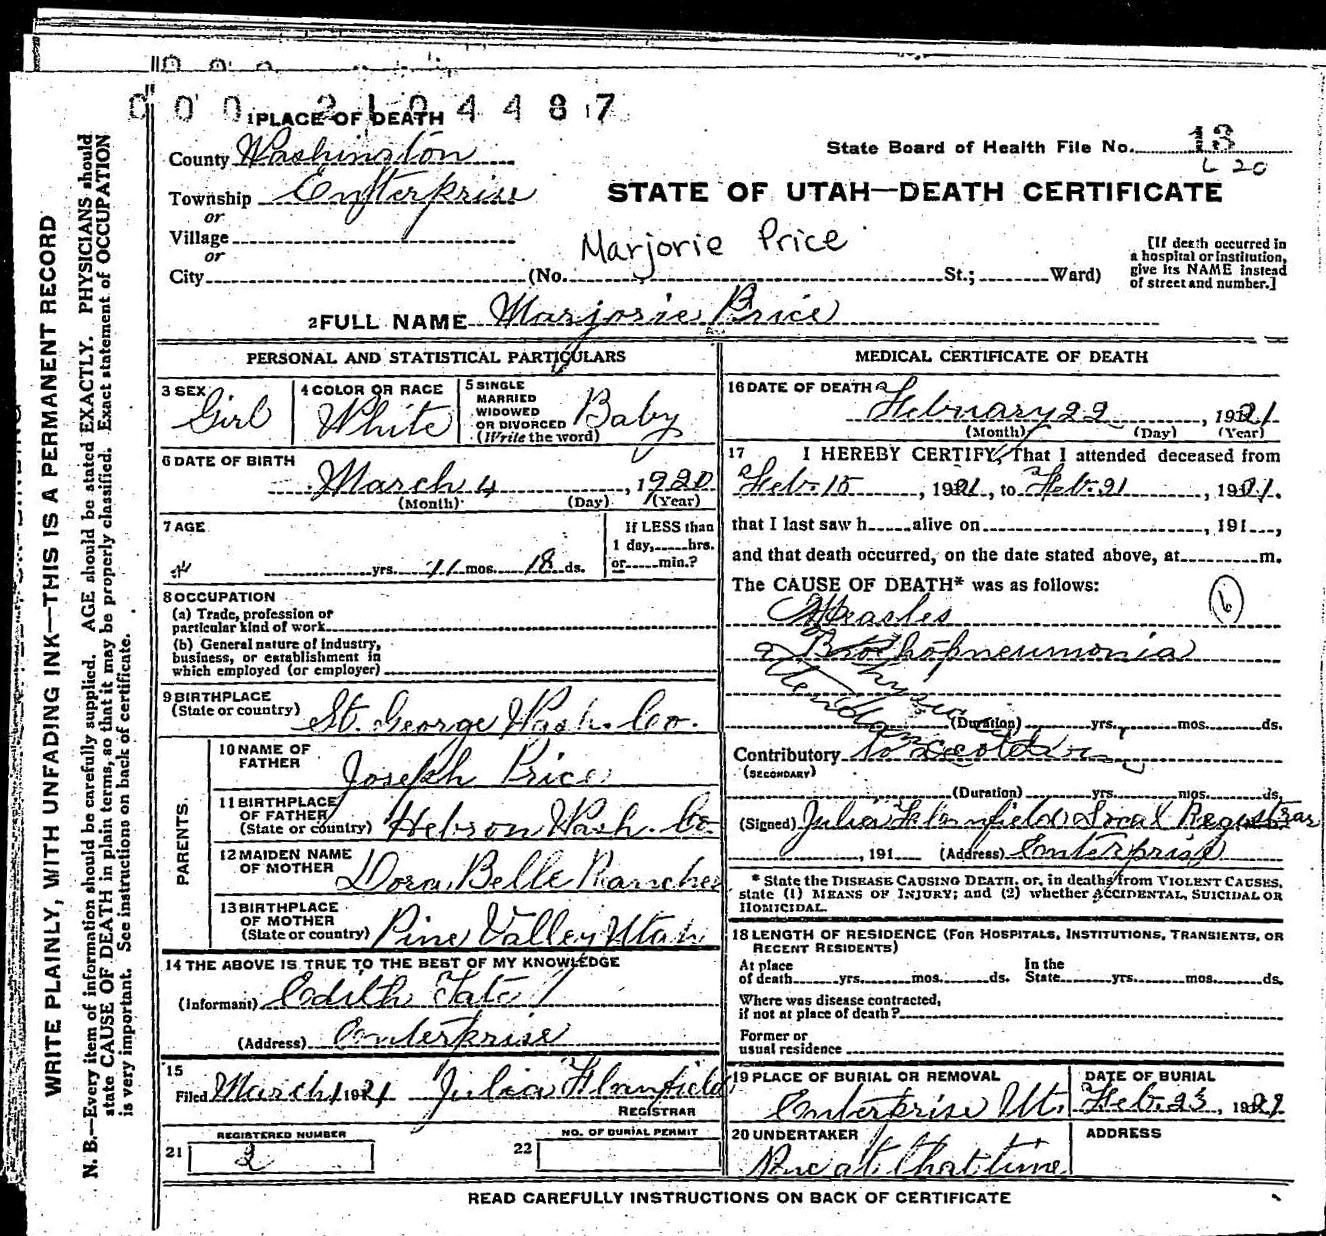 0 0 0 2 1 0 4 4 8 7
1 PLACE OF DEATH
County Washington
Township Enterprise
or
Village
or
City (No. St.; Ward)
State Board of Health File No. 13
L 20
STATE OF UTAH—DEATH CERTIFICATE
Marjorie Price
[If death occurred in
a hospital or institution,
give its NAME instead
of street and number.]
2 FULL NAME Marjorie Price
PERSONAL AND STATISTICAL PARTICULARS
3 SEX Girl
4 COLOR OR RACE White
5 SINGLE
MARRIED
WIDOWED
OR DIVORCED
(Write the word) Baby
6 DATE OF BIRTH
March 4, 1920
(Month) (Day) (Year)
7 AGE
yrs. 11 mos. 18 ds.
If LESS than
1 day, hrs.
or min.?
8 OCCUPATION
(a) Trade, profession or
particular kind of work
(b) General nature of industry,
business, or establishment in
which employed (or employer)
9 BIRTHPLACE
(State or country) St. George Wash. Co.
PARENTS.
10 NAME OF
FATHER Joseph Price
11 BIRTHPLACE
OF FATHER
(State or country) Hebron Wash. Co.
12 MAIDEN NAME
OF MOTHER Dora Belle
13 BIRTHPLACE
OF MOTHER
(State or country) Pine Valley Utah
14 THE ABOVE IS TRUE TO THE BEST OF MY KNOWLEDGE
(Informant) Edith Tate
(Address) Enterprise
15
Filed March 1 1921 Julia
REGISTRAR
REGISTERED NUMBER
21 2
NO. OF BURIAL PERMIT
22
MEDICAL CERTIFICATE OF DEATH
16 DATE OF DEATH
February 22, 1921
(Month) (Day) (Year)
17 I HEREBY CERTIFY, That I attended deceased from
Feb. 15, 1921, to Feb. 21, 1921.
that I last saw h alive on , 191 ,
and that death occurred, on the date stated above, at m.
The CAUSE OF DEATH* was as follows:
6
Measles
Bronchopneumonia
(Duration) yrs. mos. ds.
Contributory
(SECONDARY)
(Duration) yrs. mos. ds.
(Signed) Julia Local Registrar
, 191 (Address) Enterprise
* State the DISEASE CAUSING DEATH, or, in deaths from VIOLENT CAUSES,
state (1) MEANS OF INJURY; and (2) whether ACCIDENTAL, SUICIDAL OR
HOMICIDAL.
18 LENGTH OF RESIDENCE (FOR HOSPITALS, INSTITUTIONS, TRANSIENTS, OR
RECENT RESIDENTS)
At place In the
of death yrs. mos. ds. State yrs. mos. ds.
Where was disease contracted,
if not at place of death?
Former or
usual residence
19 PLACE OF BURIAL OR REMOVAL
Enterprise Ut.
DATE OF BURIAL
Feb. 23, 1921
20 UNDERTAKER
at that time
ADDRESS
READ CAREFULLY INSTRUCTIONS ON BACK OF CERTIFICATE
WRITE PLAINLY, WITH UNFADING INK—THIS IS A PERMANENT RECORD
N. B.—Every item of information should be carefully supplied. AGE should be stated EXACTLY. PHYSICIANS should
state CAUSE OF DEATH in plain terms, so that it may be properly classified. Exact statement of OCCUPATION
is very important. See instructions on back of certificate.